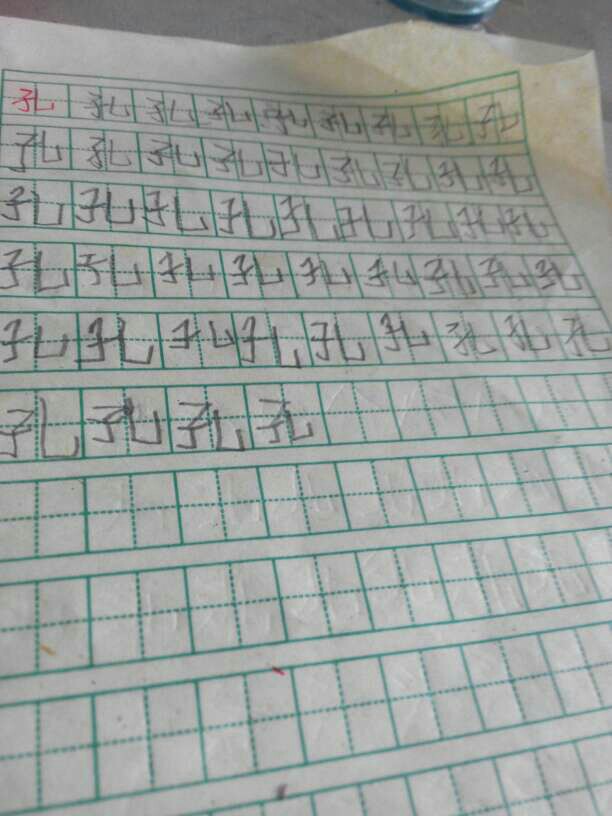 孔孔孔孔孔孔孔孔孔
孔孔孔孔孔孔孔孔孔
孔孔孔孔孔孔孔孔孔
孔孔孔孔孔孔孔孔孔
孔孔孔孔孔孔孔孔孔
孔孔孔孔